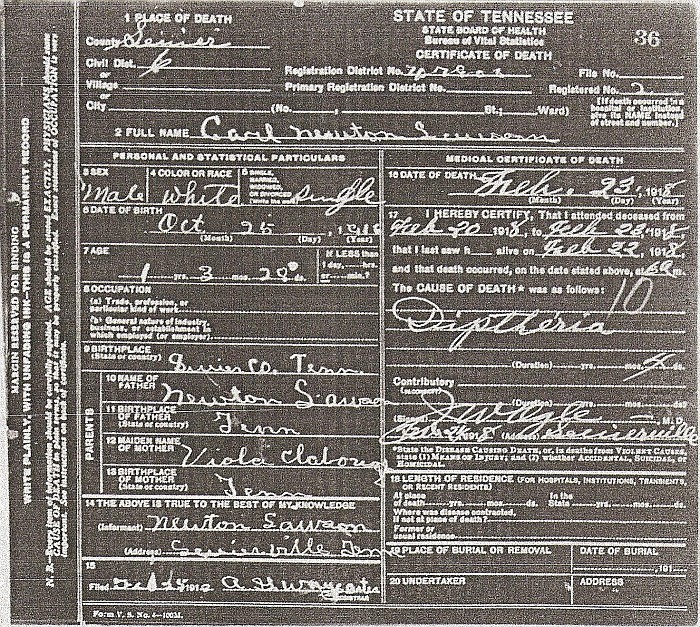 STATE OF TENNESSEE
STATE BOARD OF HEALTH
Bureau of Vital Statistics
CERTIFICATE OF DEATH
36
1 PLACE OF DEATH
County Sevier
Civil Dist. 6
or
Village
or
City (No. , St.; Ward)
Registration District No. File No.
Primary Registration District No. Registered No. 2
[If death occurred in a
hospital or institution,
give its NAME instead
of street and number.]
2 FULL NAME Carl Newton Lawson
PERSONAL AND STATISTICAL PARTICULARS
3 SEX Male
4 COLOR OR RACE White
5 SINGLE, MARRIED, WIDOWED, OR DIVORCED (Write the word) Single
6 DATE OF BIRTH
Oct 25, 191
(Month) (Day) (Year)
7 AGE
1 yrs. 3 mos. 28 ds.
If LESS than
1 day, hrs.
or min.?
8 OCCUPATION
(a) Trade, profession, or
particular kind of work
(b) General nature of industry,
business, or establishment in
which employed (or employer)
9 BIRTHPLACE
(State or country) Sevier Co. Tenn
PARENTS
10 NAME OF
FATHER Newton Lawson
11 BIRTHPLACE
OF FATHER
(State or country) Tenn
12 MAIDEN NAME
OF MOTHER Viola Clabough
13 BIRTHPLACE
OF MOTHER
(State or country) Tenn
14 THE ABOVE IS TRUE TO THE BEST OF MY KNOWLEDGE
(Informant) Newton Lawson
(Address) Sevierville Tenn
15
Filed 191
REGISTRAR
Form V. S. No. 4—100M.
MEDICAL CERTIFICATE OF DEATH
16 DATE OF DEATH Feb. 23, 1918
(Month) (Day) (Year)
17 I HEREBY CERTIFY, That I attended deceased from
Feb 20 1918, to Feb 23, 1918,
that I last saw h alive on Feb 22, 1918,
and that death occurred, on the date stated above, at m.
The CAUSE OF DEATH* was as follows:
10
Diptheria
(Duration) yrs. mos. ds.
Contributory
(SECONDARY)
(Duration) yrs. mos. ds.
(Signed) J W Ogle, M.D.
Feb 24 1918 (Address) Sevierville
*State the DISEASE CAUSING DEATH, or, in deaths from VIOLENT CAUSES,
state (1) MEANS OF INJURY; and (2) whether ACCIDENTAL, SUICIDAL, or
HOMICIDAL.
18 LENGTH OF RESIDENCE (FOR HOSPITALS, INSTITUTIONS, TRANSIENTS,
OR RECENT RESIDENTS)
At place of death yrs. mos. ds. In the State yrs. mos. ds.
Where was disease contracted,
if not at place of death?
Former or
usual residence
19 PLACE OF BURIAL OR REMOVAL
DATE OF BURIAL
, 191
20 UNDERTAKER
ADDRESS
MARGIN RESERVED FOR BINDING
WRITE PLAINLY, WITH UNFADING INK—THIS IS A PERMANENT RECORD